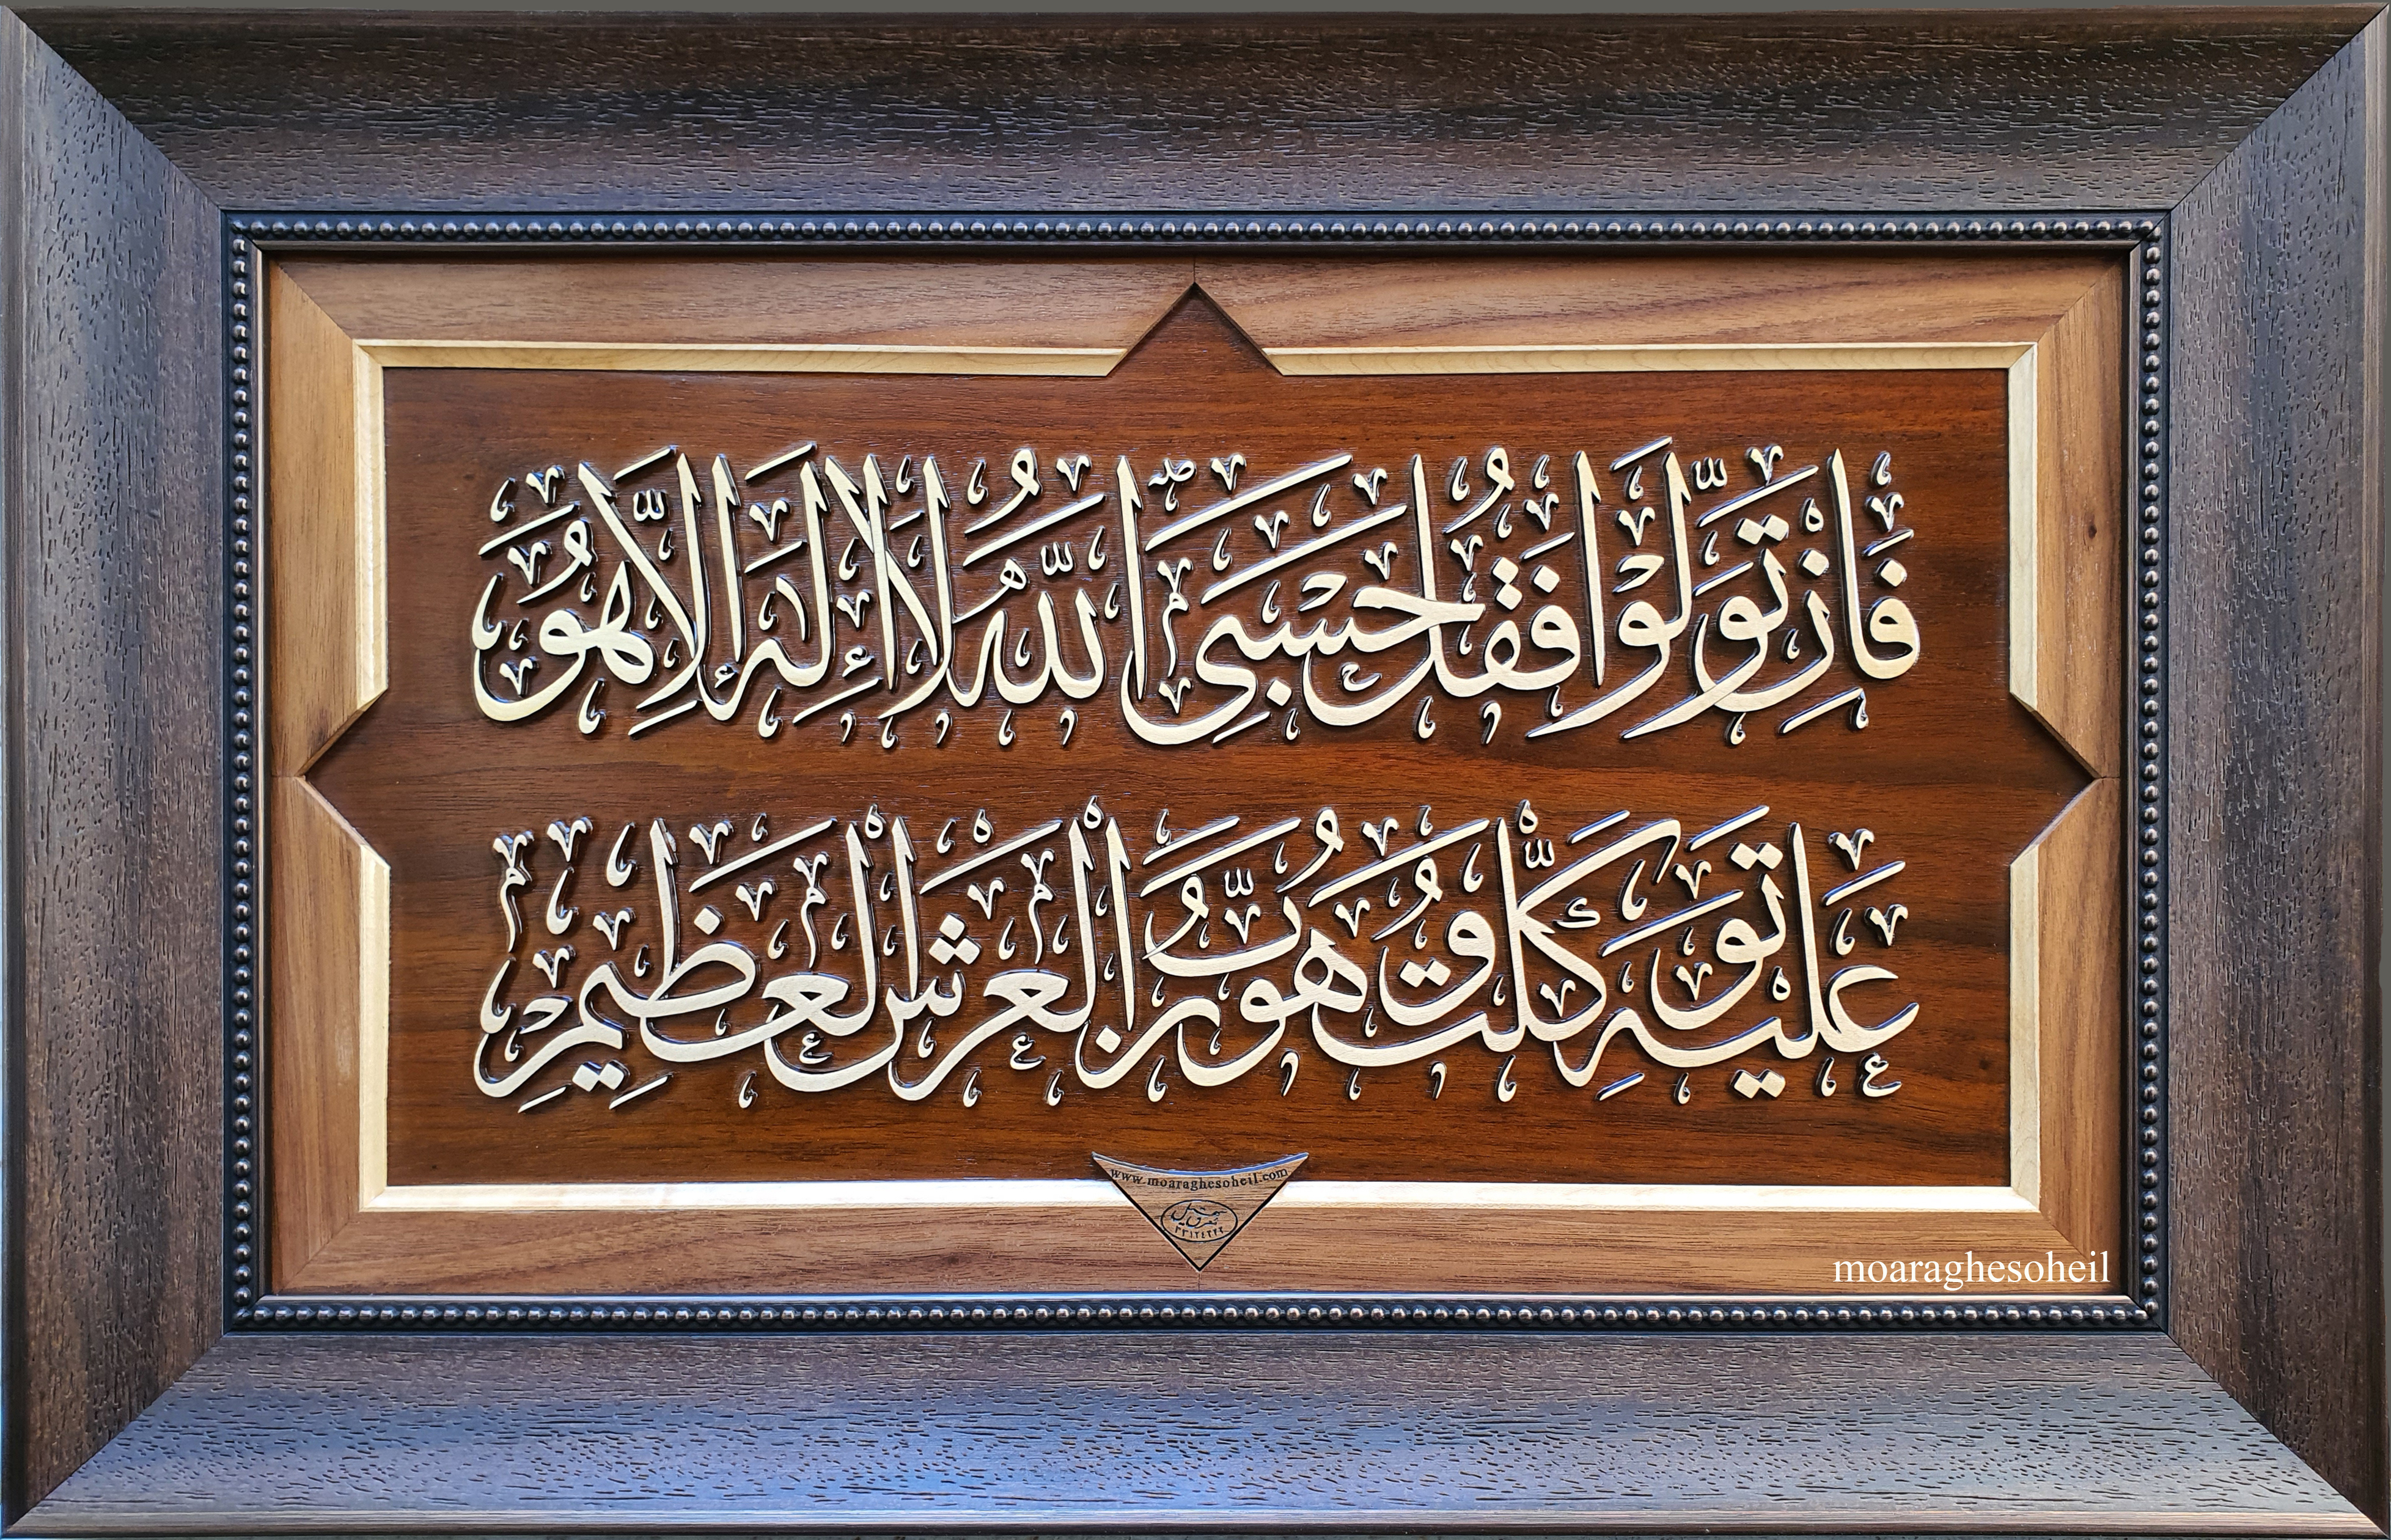 فَاِنْ تَوَلَّوْا فَقُلْ حَسْبِیَ اللّٰهُ لَا إِلٰهَ إِلَّا هُوَ
عَلَیْهِ تَوَکَّلْتُ وَهُوَ رَبُّ الْعَرْشِ الْعَظِیمِ
www.moaraghesoheil.com
moaraghesoheil